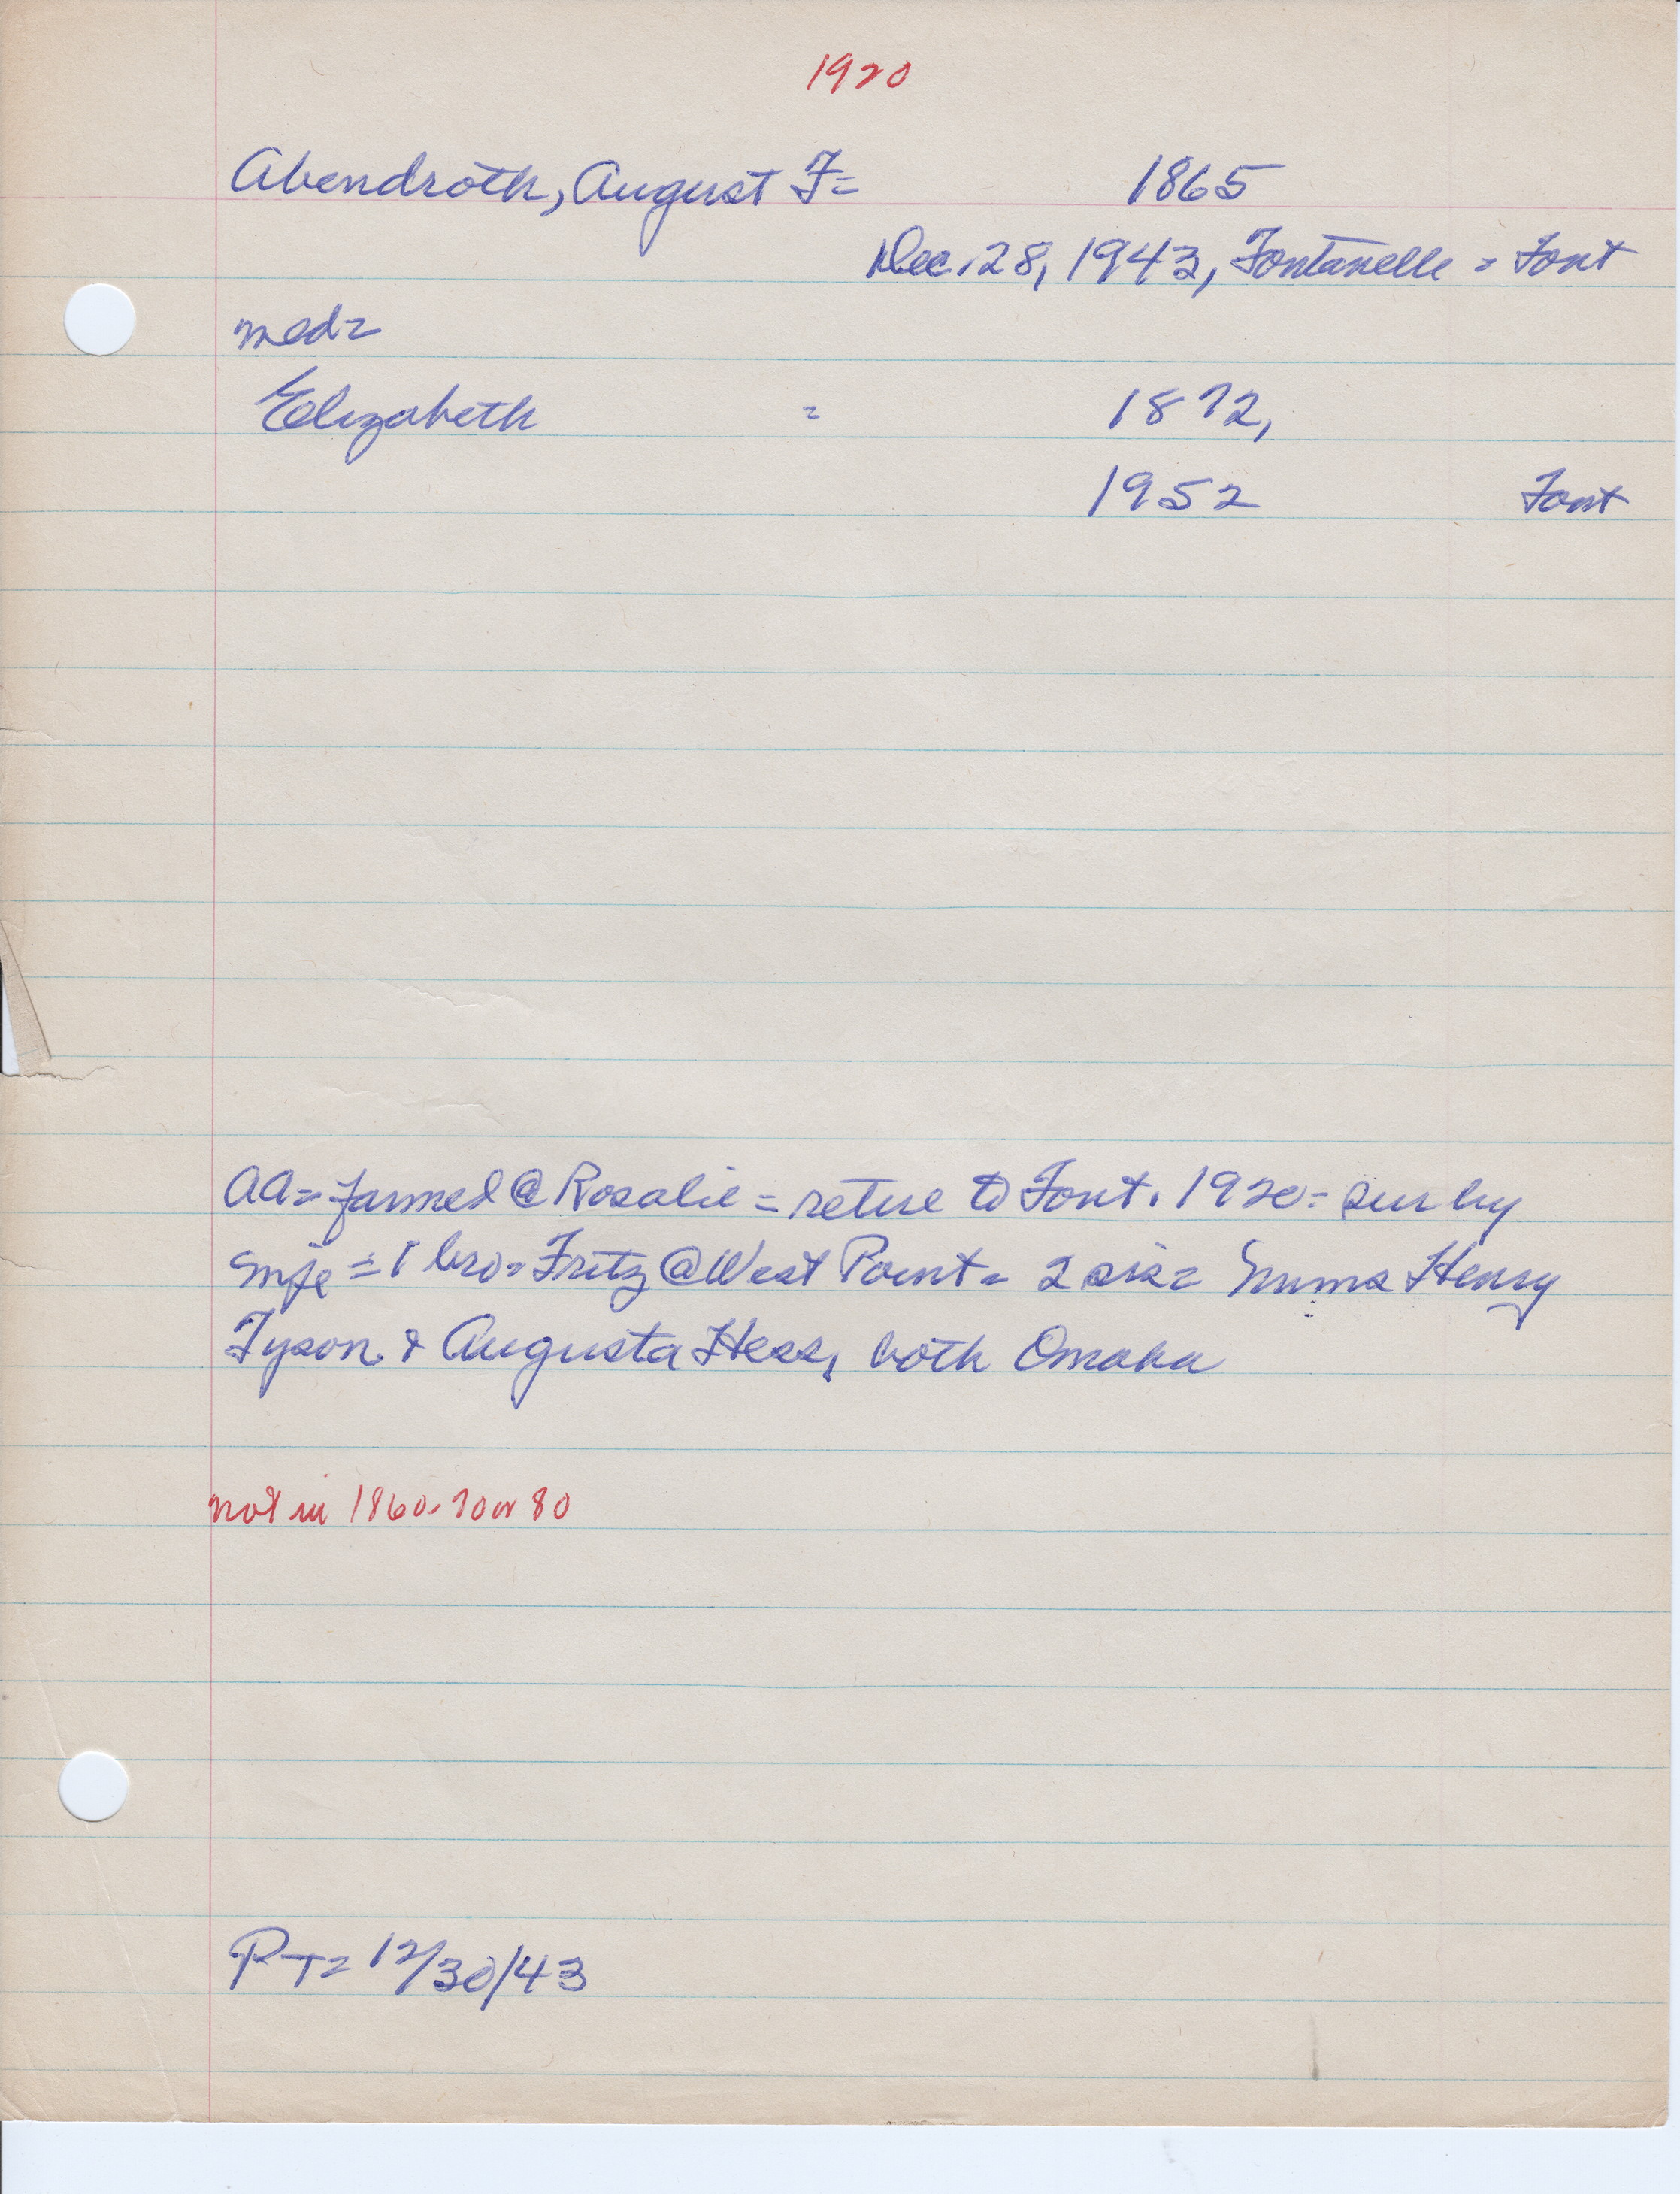 1920
Abendroth, August F= 1865
Dec. 28, 1943, Fontanelle = Font
med=
Elizabeth = 1872,
1952 Font
AA= farmed @ Rosalie = retire to Font. 1920= sur by
1 bro= Fritz @ West Point= 2 sis= Henry
Tyson & Augusta Hess, both Omaha
not in 1860-70 or 80
PT= 12/30/43